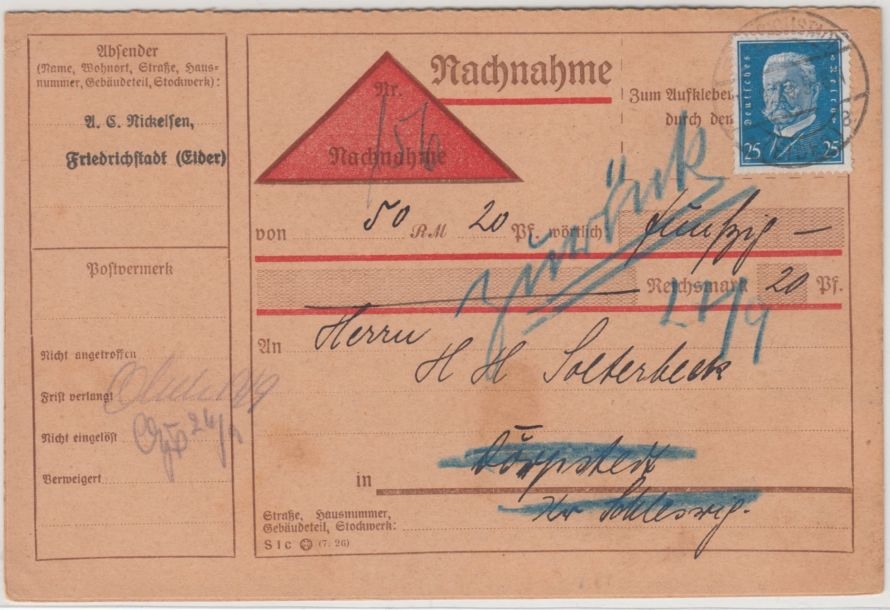 Absender
(Name, Wohnort, Straße, Haus-
nummer, Gebäudeteil, Stockwerk):
A. C. Nickelsen,
Friedrichstadt (Eider)
Postvermerk
Nicht angetroffen
Frist verlangt
Nicht eingelöst 26/9
Verweigert
Nachnahme
Nr. 156
Nachnahme
Zum Aufkleben
durch den
Deutsches Reich
25 25
von 50 RM 20 Pf. wörtlich: fünfzig —
Reichsmark 20 Pf.
zurück
An Herrn
H H Solterbeck
in Dörpstedt
Kr Schleswig.
Straße, Hausnummer,
Gebäudeteil, Stockwerk:
S 1 c (7. 26)